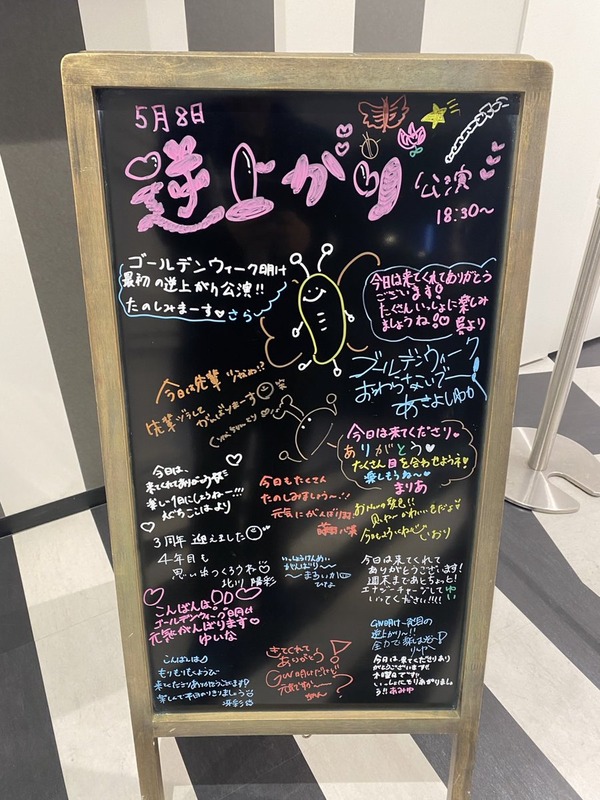 5月8日
逆上がり
公演
18:30〜
ゴールデンウィーク明け
最初の逆上がり公演!!
たのしみまーす♥さら
今日は来てくれてありがとう
ございます!
たくさんいっしょに楽しみ
ましょうね!♡ より
ゴールデンウィーク
おわらないでー!
今日は先輩
先輩ヅラして
がんばりまーす
今日は来てくださり
ありがとう♡
たくさん目を合わせようネ!
楽しもうね〜
まりあ
今日は、
来てくれてありがとう
楽しい1日にしましょうねー!!!
えぐちこはるより
今日もたくさん
たのしみましょう〜!!
元気にがんばります
いおり
3周年 迎えました
4年目も
思い出つくろうね
北川 陽彩
いっしょうけんめい
がんばります
今日は来てくれて
ありがとうございます!
週末まであとちょっと!
エナジーチャージして ゆい
いってください!!!!
こんばんは。
ゴールデンウィーク明け
元気にがんばります♥
ゆいな
GW明け一発目の
逆上がり〜!!
全力で
りーやー
こんばんは
もりもりもくようびー
来てくださりありがとうございます
きてくれて
ありがとう!
GW明けだけど
元気ですかー?
今日は来てくださりあり
がとうございます
木曜日です
いっしょにもりあがりましょ
う!! あみゆ